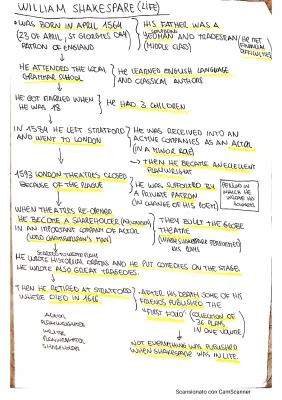 WILLIAM SHAKESPEARE (LIFE)
• WAS BORN IN APRIL 1564
(23 OF APRIL, ST GEORGE'S DAY)
PATRON OF ENGLAND
HIS FATHER WAS A
YEOMAN AND TRADESMAN
(MIDDLE CLASS)
HE MET
FINANCIAL
DIFFICULTIES
HE ATTENDED THE LOCAL
GRAMMAR SCHOOL
HE LEARNED ENGLISH LANGUAGE
AND CLASSICAL AUTHORS
HE GOT MARRIED WHEN
HE WAS 18
HE HAD 3 CHILDREN
IN 1584 HE LEFT STRATFORD
AND WENT TO LONDON
HE WAS RECEIVED INTO AN
ACTIVE COMPANIES AS AN ACTOR
(IN A MINOR ROLE)
THEN HE BECAME AN EXCELLENT
PLAYWRIGHT
1593 LONDON THEATRES CLOSED
BECAUSE OF THE PLAGUE
HE WAS SUPPORTED BY
A PRIVATE PATRON
(IN CHANGE OF HIS POEM)
PERIOD IN
WHICH HE
WROTE HIS
SONNETS
WHEN THEATRES RE-OPENED
HE BECAME A SHAREHOLDER
IN AN IMPORTANT COMPANY OF ACTOR
(LORD CHAMBERLAIN'S MEN)
THEY BUILT THE GLOBE
THEATRE
(WHERE SHAKESPEARE PERFORMED
HIS PLAYS
STARTED TO WRITE PLAYS
HE WROTE HISTORICAL DRAMAS AND HE PUT COMEDIES ON THE STAGE.
HE WROTE ALSO GREAT TRAGEDIES.
THEN HE RETIRED AT STRATFORD
WHERE DIED IN 1616
AFTER HIS DEATH SOME OF HIS
FRIENDS PUBLISHED THE
"FIRST FOLIO"
(COLLECTION OF
36 PLAYS
IN ONE VOLUME)
ACTOR
PLAYWRIGHTER
WRITER
SHAREHOLDER
NOT EVERYTHING WAS PUBLISHED
WHEN SHAKESPEARE WAS IN LIFE.
Scansionato con CamScanner